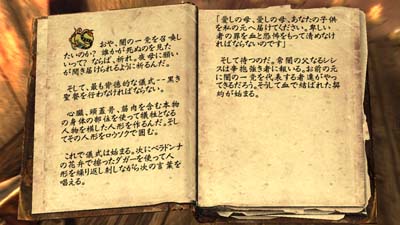 おや、闇の一党を召喚し
たいのか？誰かが死ぬのを見た
いって？ならば、祈れ。夜母に願い
が聞き届けられるように祈るんだ。
そして、最も背徳的な儀式--黒き
聖餐を行わなければならない。
心臓、頭蓋骨、筋肉を含む本物
の身体の部位を使って犠牲となる
人物を模した人形を作るんだ。そし
てその人形をロウソクで囲む。
これで儀式は始まる。次にベラドンナ
の花弁で擦ったダガーを使って人
形を繰り返し刺しながら次の言葉を
唱える。
「愛しの母、愛しの母、あなたの子供
を私の元へ届けてください。卑しい
者の罪を血と恐怖をもって清めなけ
ればならないのです」
そして待つのだ。常闇の父なるシレ
スは辛抱強き者に報いる。お前の元
に闇の一党を代表する者達がやっ
てきるだろう。そして血で結ばれた契
約が始まる。